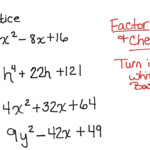 tice
x² - 8x + 16
h⁴ + 22h + 121
4x² + 32x + 64
9y² - 42x + 49
Factor
& Che
Turn i
whi